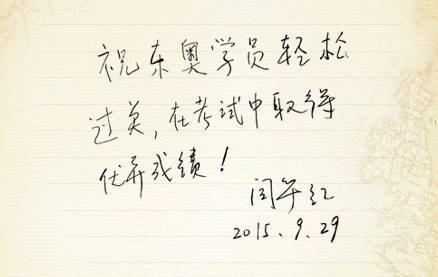 祝东奥学员轻松
过关,在考试中取得
优异成绩!
闫华红
2015.9.29